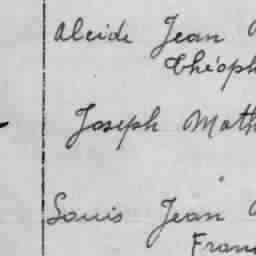 Alcide Jean
Théoph
Joseph Math
Louis Jean
Fran